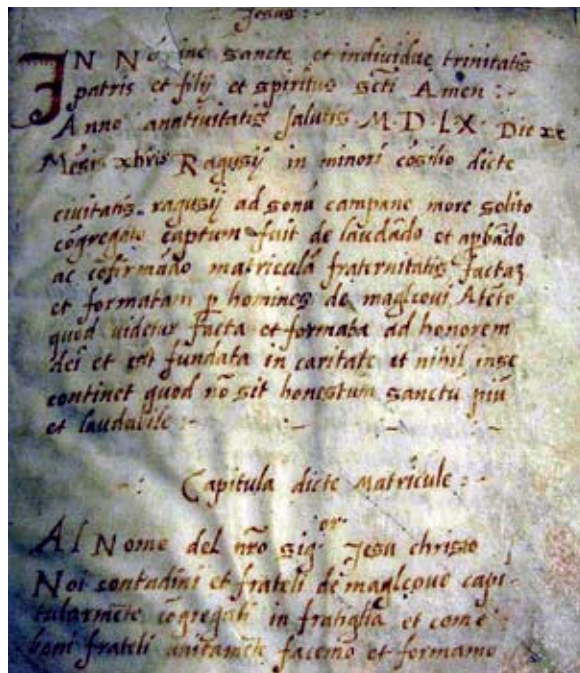 Jesus :-
IN Nōīne Sancte et individue trinitatis
patris et filij et spiritus scti Amen :-
Anno anatiuitatis salutis M·D·LX· Die xx
Mēsis xbris Ragusij in minori cōsilio dicte
ciuitatis ragusij ad sonū campane more solito
cōgregato captum fuit de laudādo et apbādo
ac cōfirmādo matriculā fraternitatis factaȝ
et formatam ꝑ homines de maglcoui, Atēto
quod uidetur facta et formata ad honorem
dei et est fundata in caritate et nihil inse
continet quod nō sit honestum sanctū piū
et laudabile :- :- -:- -
-: Capitula dicte Matricule :-
Al Nome del nr̄o sigor Jesu christo
Noi contadini et frateli de maglcoue capi-
tularmēte cōgregati in fratiglia et come
boni frateli unitamēte facemo et formamo